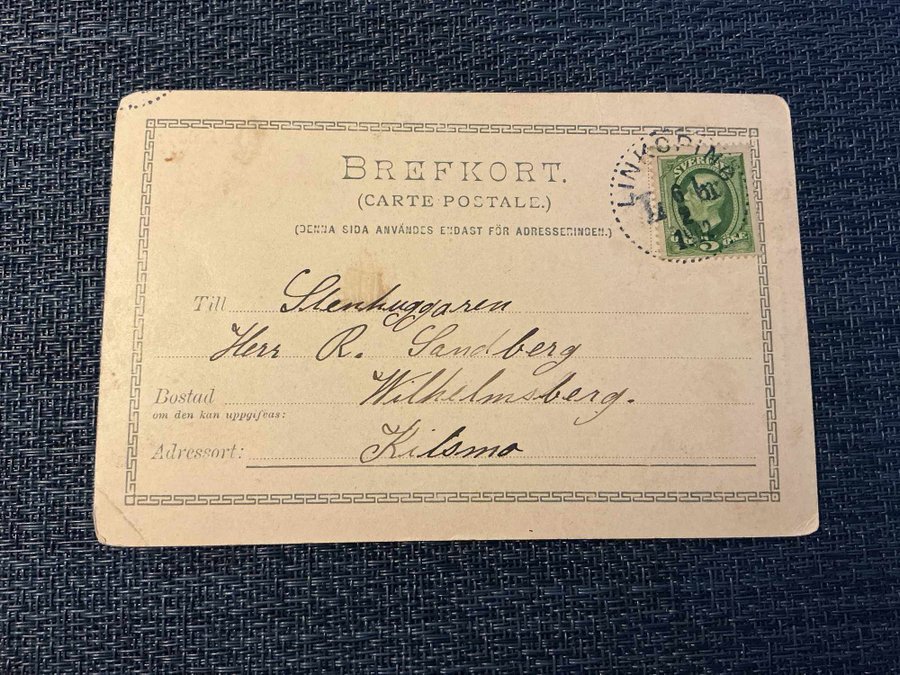 BREFKORT.
(CARTE POSTALE.)
(DENNA SIDA ANVÄNDES ENDAST FÖR ADRESSERINGEN.)
LINKÖPING
SVERIGE
ÖRE
Till Stenhuggaren
Herr R. Sandberg
Bostad Wilhelmsberg.
om den kan uppgifvas:
Adressort: Kilsmo